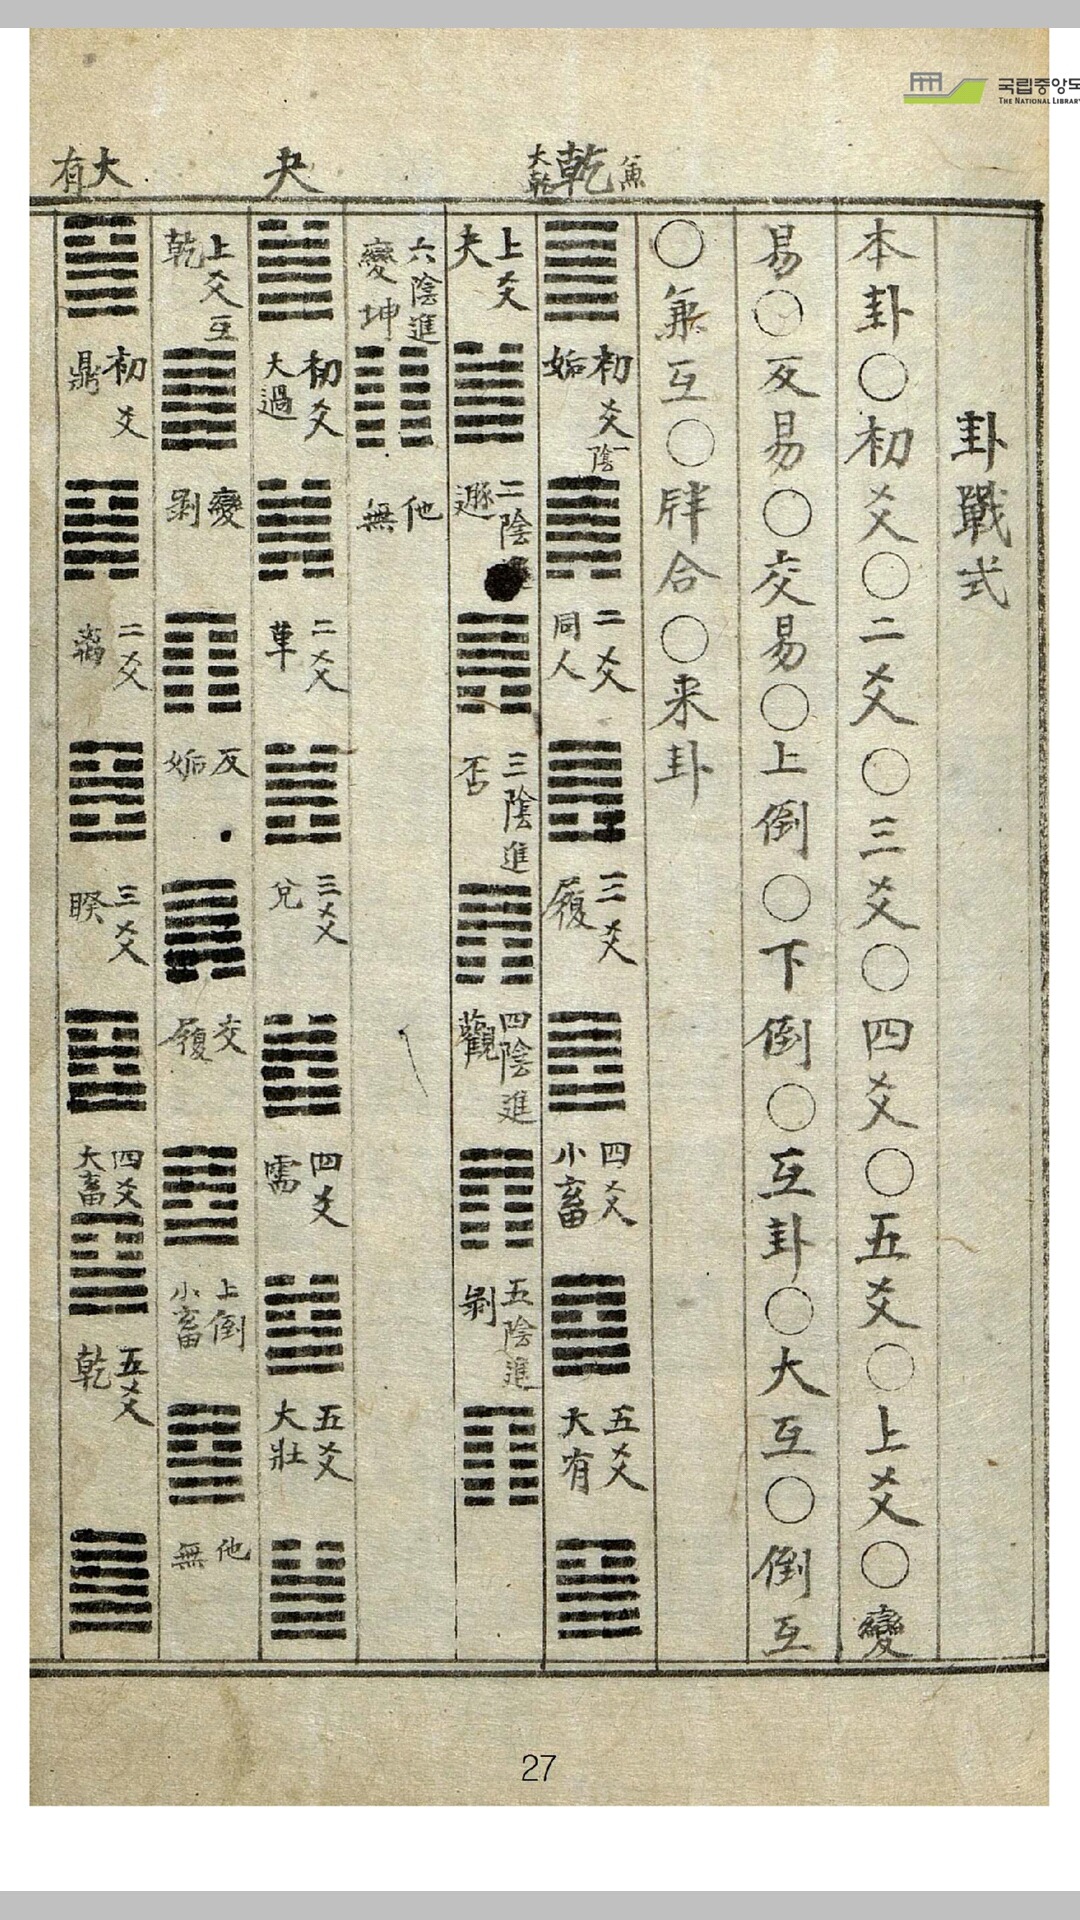 국립중앙도
THE NATIONAL LIBRARY
卦戰式
本卦〇初爻〇二爻〇三爻〇四爻〇五爻〇上爻〇變
易〇反易〇交易〇上倒〇下倒〇互卦〇大互〇倒互
〇兼互〇牉合〇来卦
兼
乾
大乾
初爻一陰
姤
二爻
同人
三爻
履
四爻
小畜
五爻
大有
上爻
夬
二陰進
遯
三陰進
否
四陰進
觀
五陰進
剝
六陰進
變坤
他
無
夬
初爻
大過
二爻
革
三爻
兌
四爻
需
五爻
大壯
上爻互
乾
變
剝
反
姤
交
履
上倒
小畜
他
無
大有
初爻
鼎
二爻
離
三爻
睽
四爻
大畜
五爻
乾
27